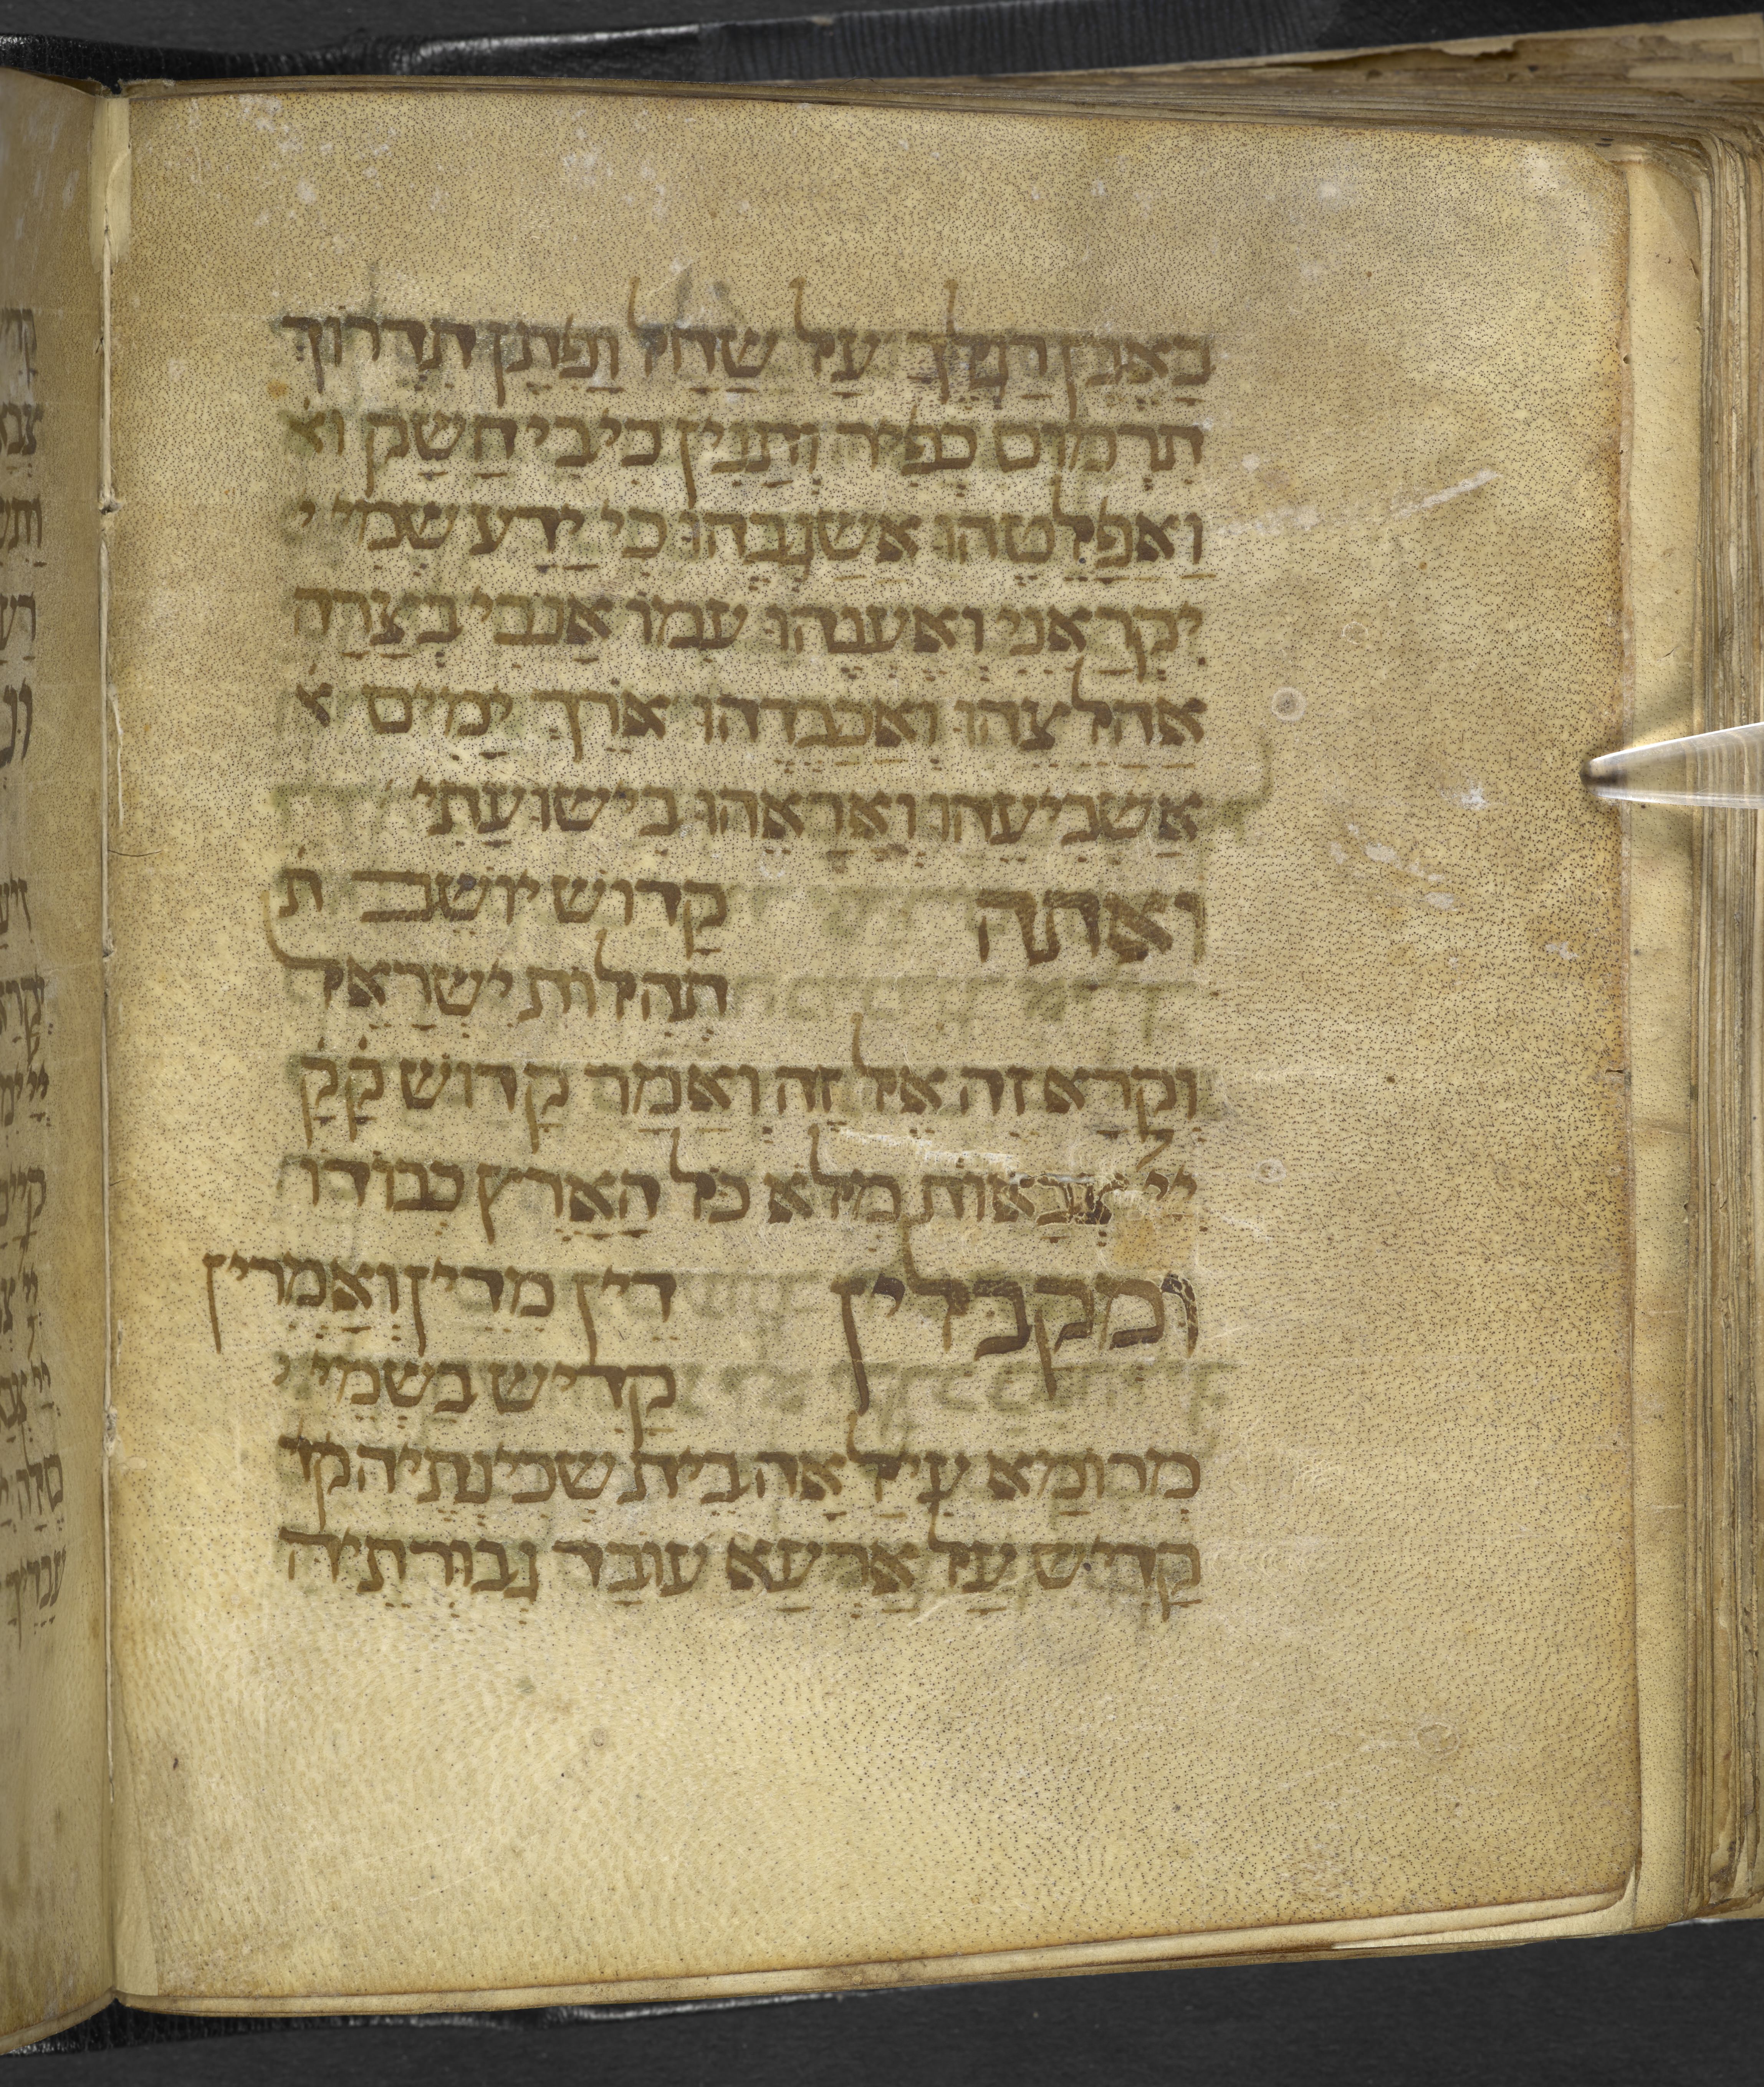 בָּאֶבֶן רַגְלֶךָ עַל שַׁחַל וָפֶתֶן תִּדְרוֹךְ
תִּרְמוֹס כְּפִיר וְתַנִּין כִּי בִי חָשַׁק וא
וַאֲפַלְּטֵהוּ אֲשַׂגְּבֵהוּ כִּי יָדַע שְׁמִי י
יִקְרָאֵנִי וְאֶעֱנֵהוּ עִמּוֹ אָנֹכִי בְצָרָה
אֲחַלְּצֵהוּ וַאֲכַבְּדֵהוּ אֹרֶךְ יָמִים א
אַשְׂבִּיעֵהוּ וְאַרְאֵהוּ בִּישׁוּעָתִי
וְאַתָּה קָדוֹשׁ יוֹשֵׁב ת
תְּהִלּוֹת יִשְׂרָאֵל
וְקָרָא זֶה אֶל זֶה וְאָמַר קָדוֹשׁ קָ קָ
יְיָ צְבָאוֹת מְלֹא כָל הָאָרֶץ כְּבוֹדוֹ
וּמְקַבְּלִין דֵּין מִדֵּין וְאָמְרִין
קַדִּישׁ בִּשְׁמֵי י
מְרוֹמָא עִילָּאָה בֵּית שְׁכִינְתֵּיהּ קד
קַדִּישׁ עַל אַרְעָא עוֹבַד גְּבוּרְתֵּיהּ